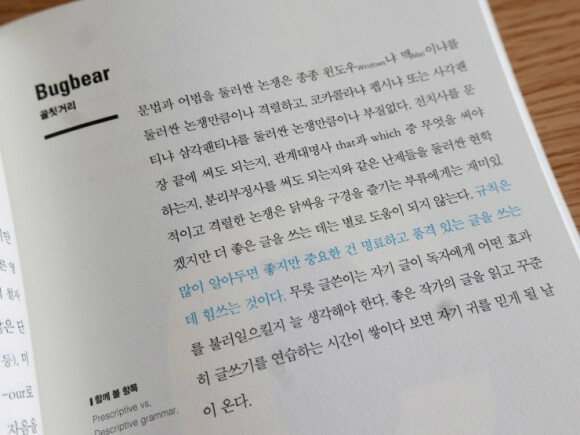 Bugbear
골칫거리
문법과 어법을 둘러싼 논쟁은 종종 윈도우Windows냐 맥Mac이냐를
둘러싼 논쟁만큼이나 격렬하고, 코카콜라냐 펩시냐 또는 사각팬
티냐 삼각팬티냐를 둘러싼 논쟁만큼이나 부질없다. 전치사를 문
장 끝에 써도 되는지, 관계대명사 that과 which 중 무엇을 써야
하는지, 분리부정사를 써도 되는지와 같은 난제들을 둘러싼 현학
적이고 격렬한 논쟁은 닭싸움 구경을 즐기는 부류에게는 재미있
겠지만 더 좋은 글을 쓰는 데는 별로 도움이 되지 않는다. 규칙은
많이 알아두면 좋지만 중요한 건 명료하고 품격 있는 글을 쓰는
데 힘쓰는 것이다. 무릇 글쓴이는 자기 글이 독자에게 어떤 효과
를 불러일으킬지 늘 생각해야 한다. 좋은 작가의 글을 읽고 꾸준
히 글쓰기를 연습하는 시간이 쌓이다 보면 자기 귀를 믿게 될 날
이 온다.
함께 볼 항목
Prescriptive vs.
Descriptive grammar.
등). 미
-our로
자음을